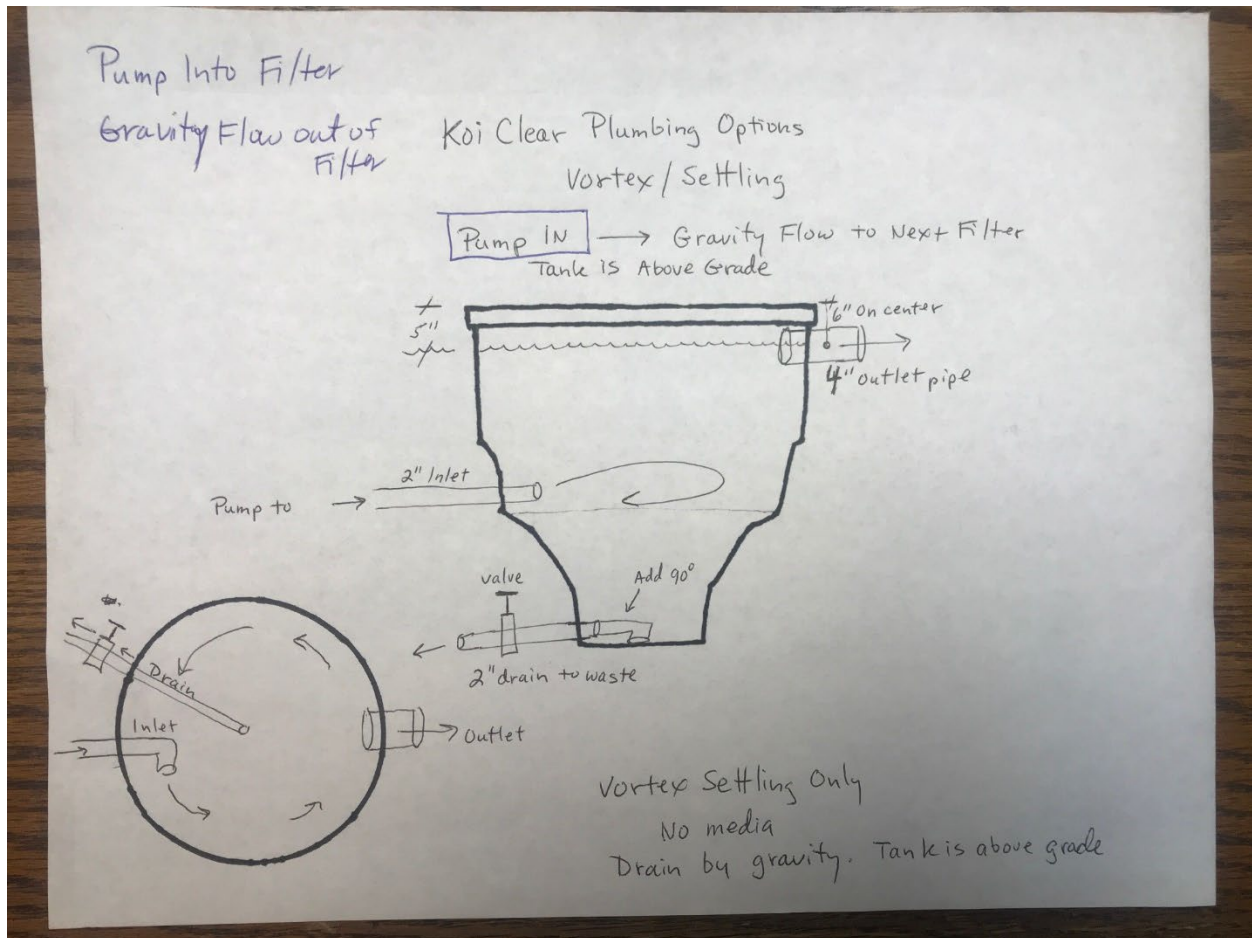 Pump Into Filter
Gravity Flow out of
Filter
Koi Clear Plumbing Options
Vortex/Settling
Pump IN → Gravity Flow to Next Filter
Tank is Above Grade
5"
6" on center
4" outlet pipe
2" Inlet
Pump to
valve
Add 90°
2" drain to waste
Drain
Inlet
Outlet
Vortex Settling Only
No media
Drain by gravity. Tank is above grade